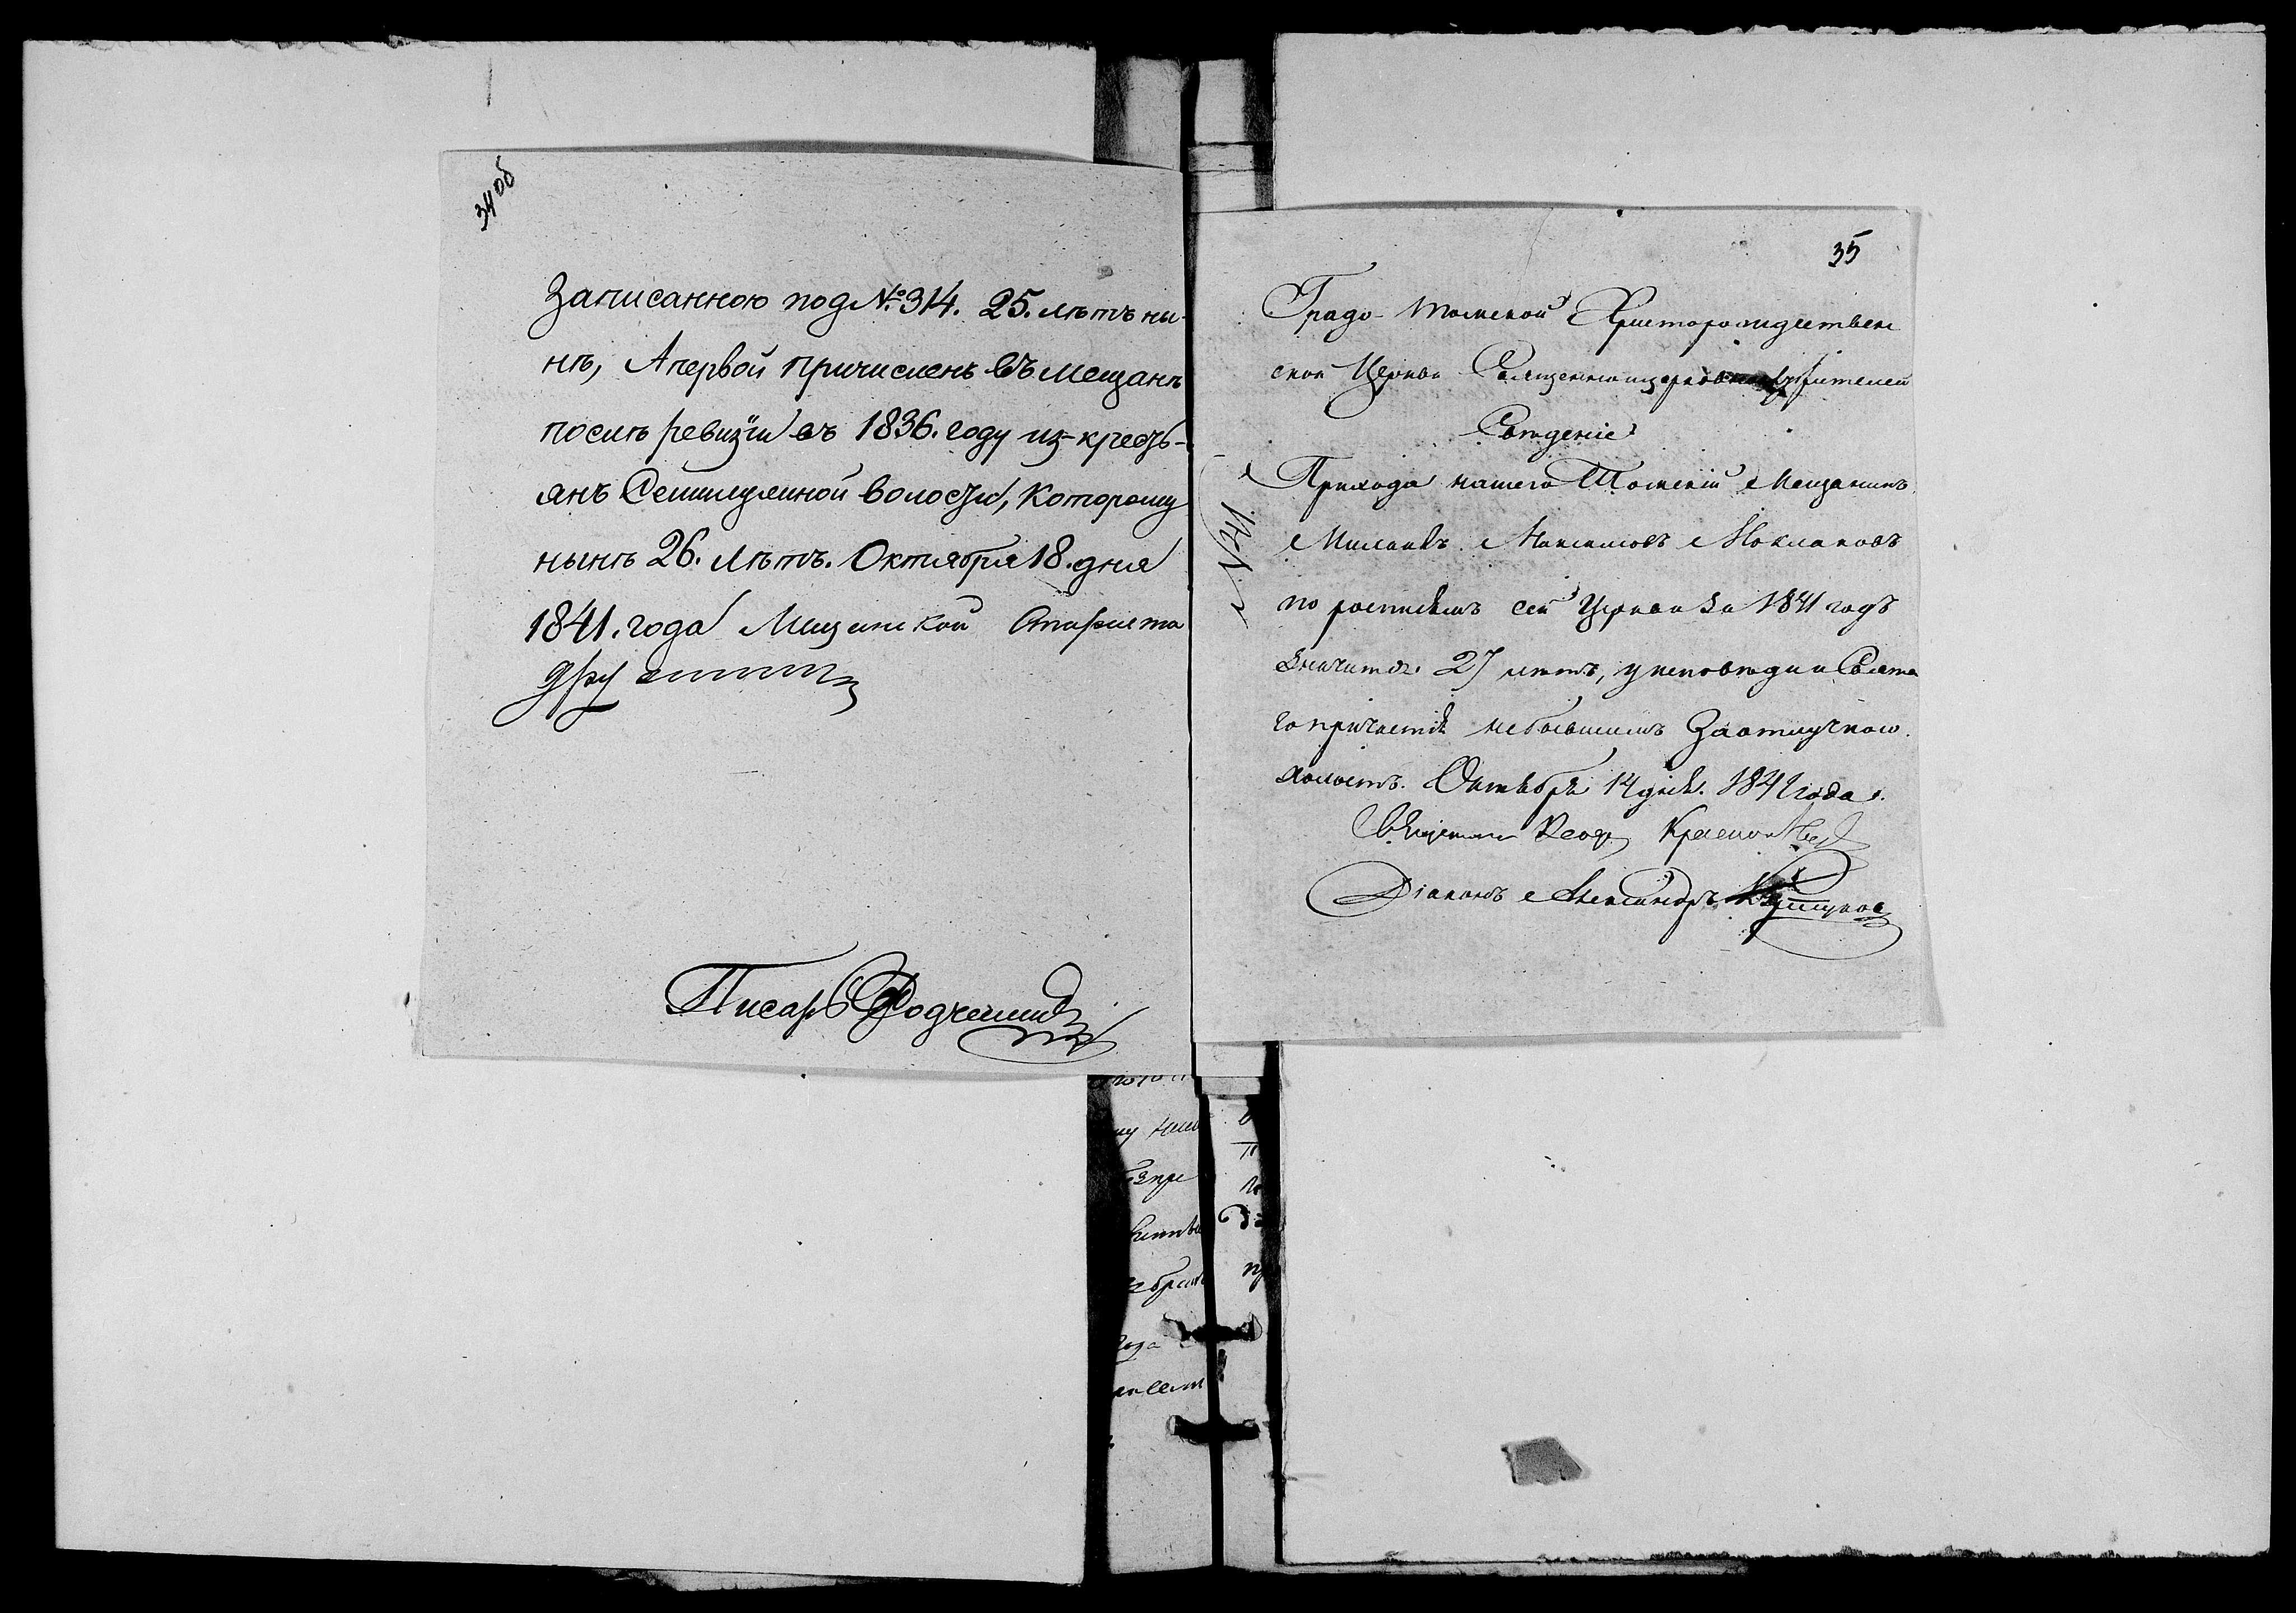 34 об
Записанною под № 314. 25. лѣтъ ны-
нѣ, А первой причисленъ въ мещанѣ
послѣ ревизіи въ 1836. году из-кресть-
янъ Семилужной волости, которому
нынѣ 26. лѣтъ. Октября 18. дня
1841. года Мещанской Староста
Писарь
35
Градо-Томской Христорождествен
ской Церкви Священноцерковнослужителей
Свѣденіе
№ 41.
Прихода нашего Томскій Мещанинъ
Максимовъ Моклоковъ
по росписямъ сей Церкви за 1841 годъ
значится 27 лѣтъ, у исповѣди и Свята
го причастія небывшимъ За отлучкою.
холостъ. Октября 14 дня. 1841 года.
Священникъ
Діаконъ Александръ